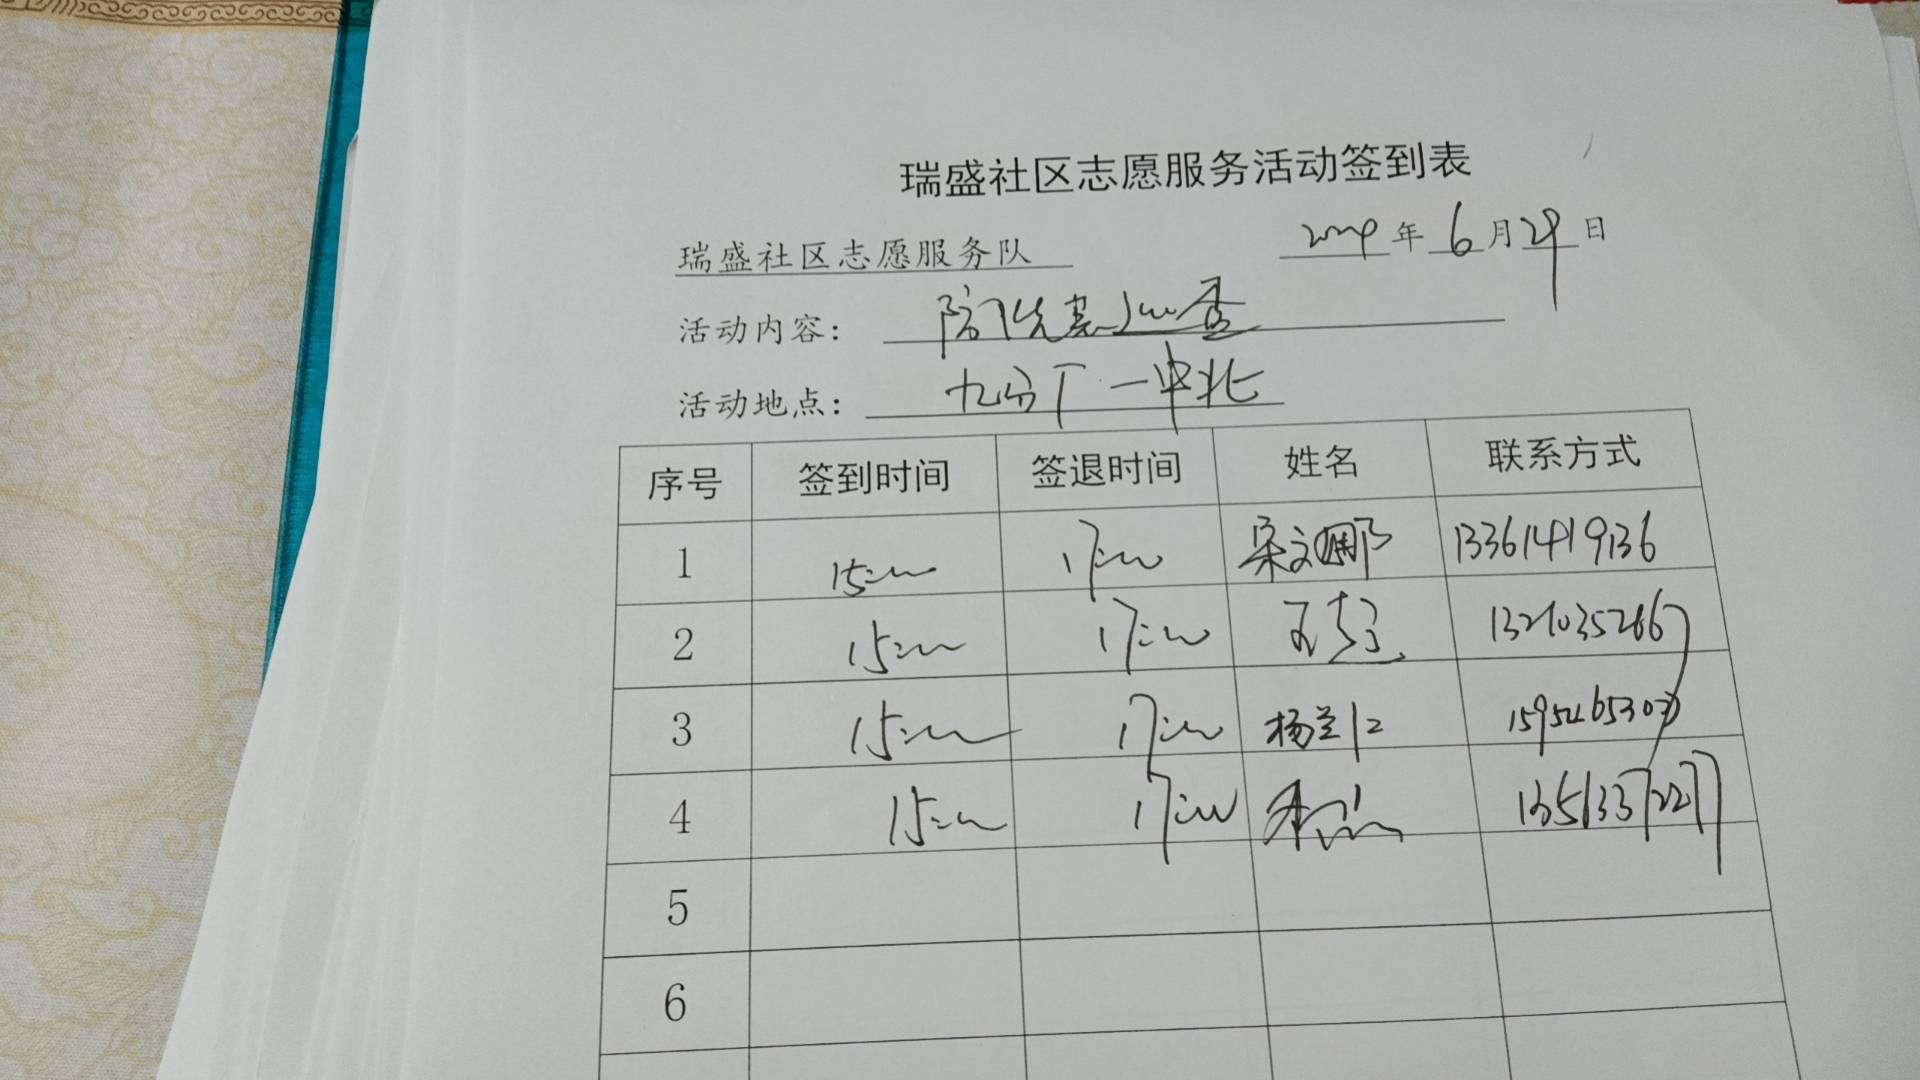 瑞盛社区志愿服务活动签到表
瑞盛社区志愿服务队 2024年6月29日
活动内容:
活动地点: 九分厂一中北
序号 签到时间 签退时间 姓名 联系方式
1 15:00 17:00 宋文娜 13361419136
2 15:00 17:00
3 15:00 17:00 杨兰仁
4 15:00 17:00
5
6